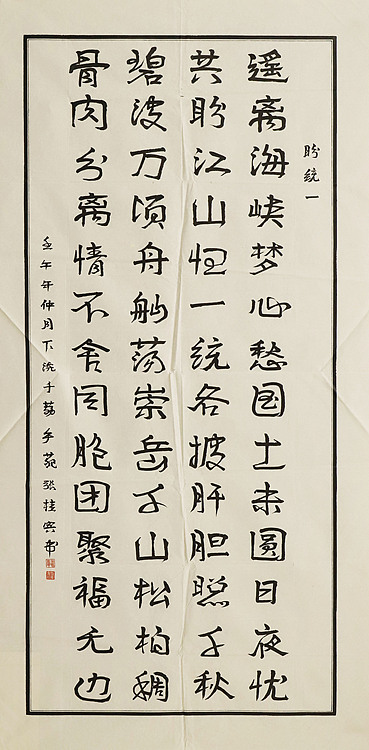 盼统一
遥离海峡梦心愁国土未圆日夜忧
共盼江山恒一统各披肝胆照千秋
碧波万顷舟舢荡崇岳千山松柏稠
骨肉分离情不舍同胞团聚福无边
壬午年仲月下浣于荔乡苑张桂书